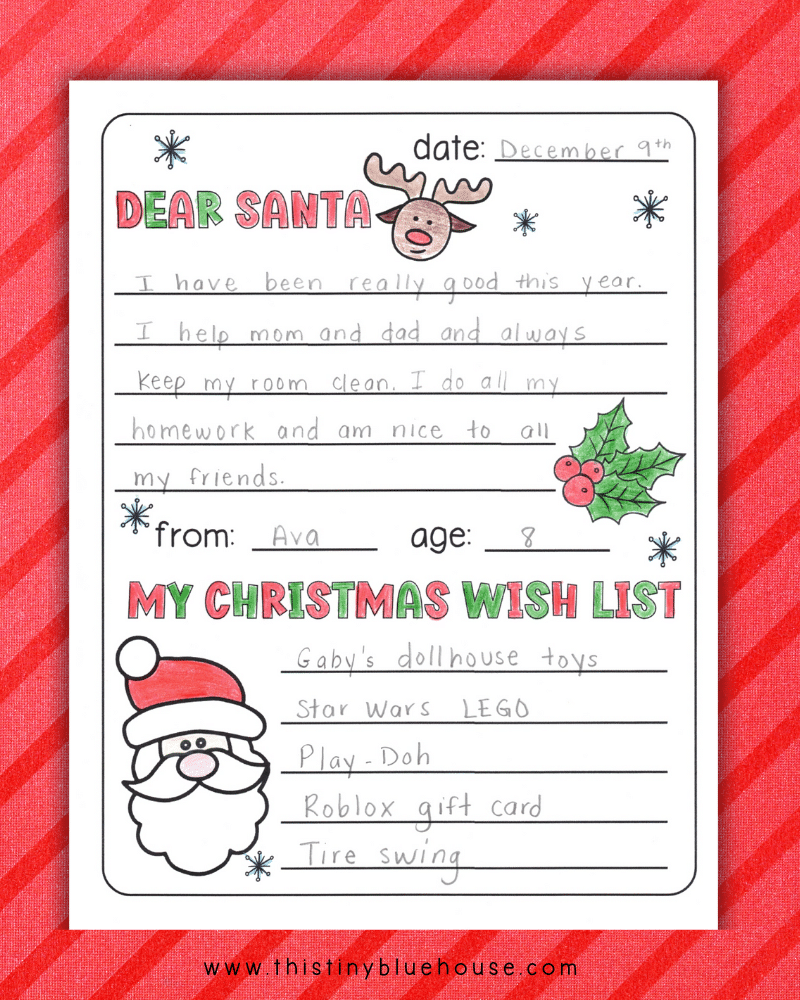 date: December 9th
DEAR SANTA
I have been really good this year.
I help mom and dad and always
keep my room clean. I do all my
homework and am nice to all
my friends.
from: Ava age: 8
MY CHRISTMAS WISH LIST
Gaby's dollhouse toys
Star Wars LEGO
Play-Doh
Roblox gift card
Tire swing
www.thistinybluehouse.com